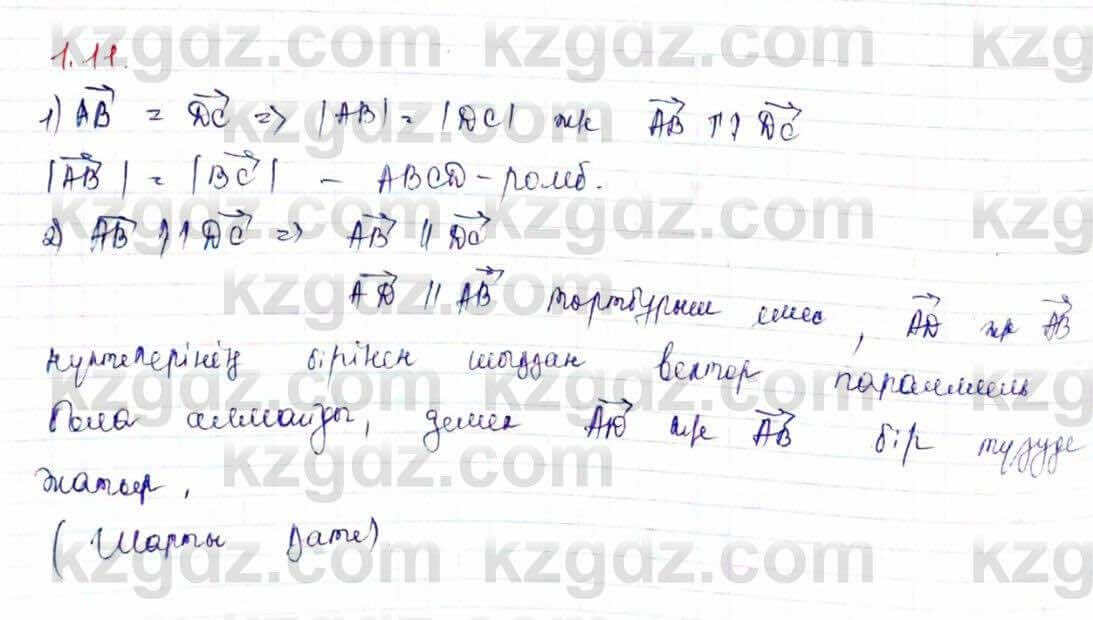 1.11.
1) AB = DC => |AB| = |DC| жне AB ↑↑ DC
|AB| = |BC| - ABCD - ромб.
2) AB ↑↑ DC => AB || DC
AD || AB төртбұрыш емес, AD жне AB
нүктелерінің бірінен шыққан вектор параллель
бола алмайды, демек AD жне AB бір түзуде
жатыр,
(Шарты қате)
kzgdz.com kzgdz.com kzgdz.com
kzgdz.com kzgdz.com
kzgdz.com kzgdz.com kzgdz.com
kzgdz.com kzgdz.com
kzgdz.com kzgdz.com kzgdz.com
kzgdz.com kzgdz.com
kzgdz.com kzgdz.com kzgdz.com